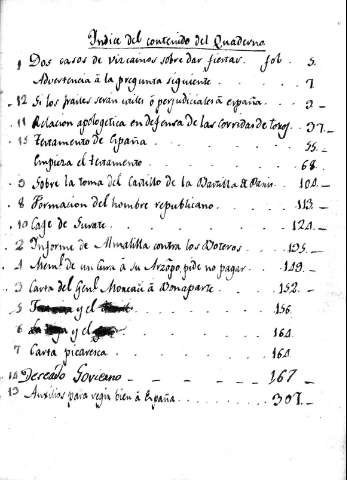 Indice del contenido del Quaderno
1 Dos casos de vizcainos sobre dar fiestas. fol. 5.
Advertencia â la pregunta siguiente 7
12 Si los frailes seran utiles ô perjudiciales â España 9
11 Relacion apologetica en defensa de las corridas de toros 37.
15 Testamento de España 55.
Empieza el testamento 68.
9 Sobre la toma del Castillo de la Bastilla de Paris 104.
8 Formacion del hombre republicano 113.
10 Cafe de Surate 124.
2 Informe de contra los Boteros 135.
4 Meml. de un Cura â su Arzopo, pide no pagar 149.
3 Carta del Genl. Moncaii â Bonaparte 152.
5 y el 156
6 y el 164
7 Carta picaresca 164.
14 Deseado Govierno 167
13 Auxilios para regir bien â España 307.